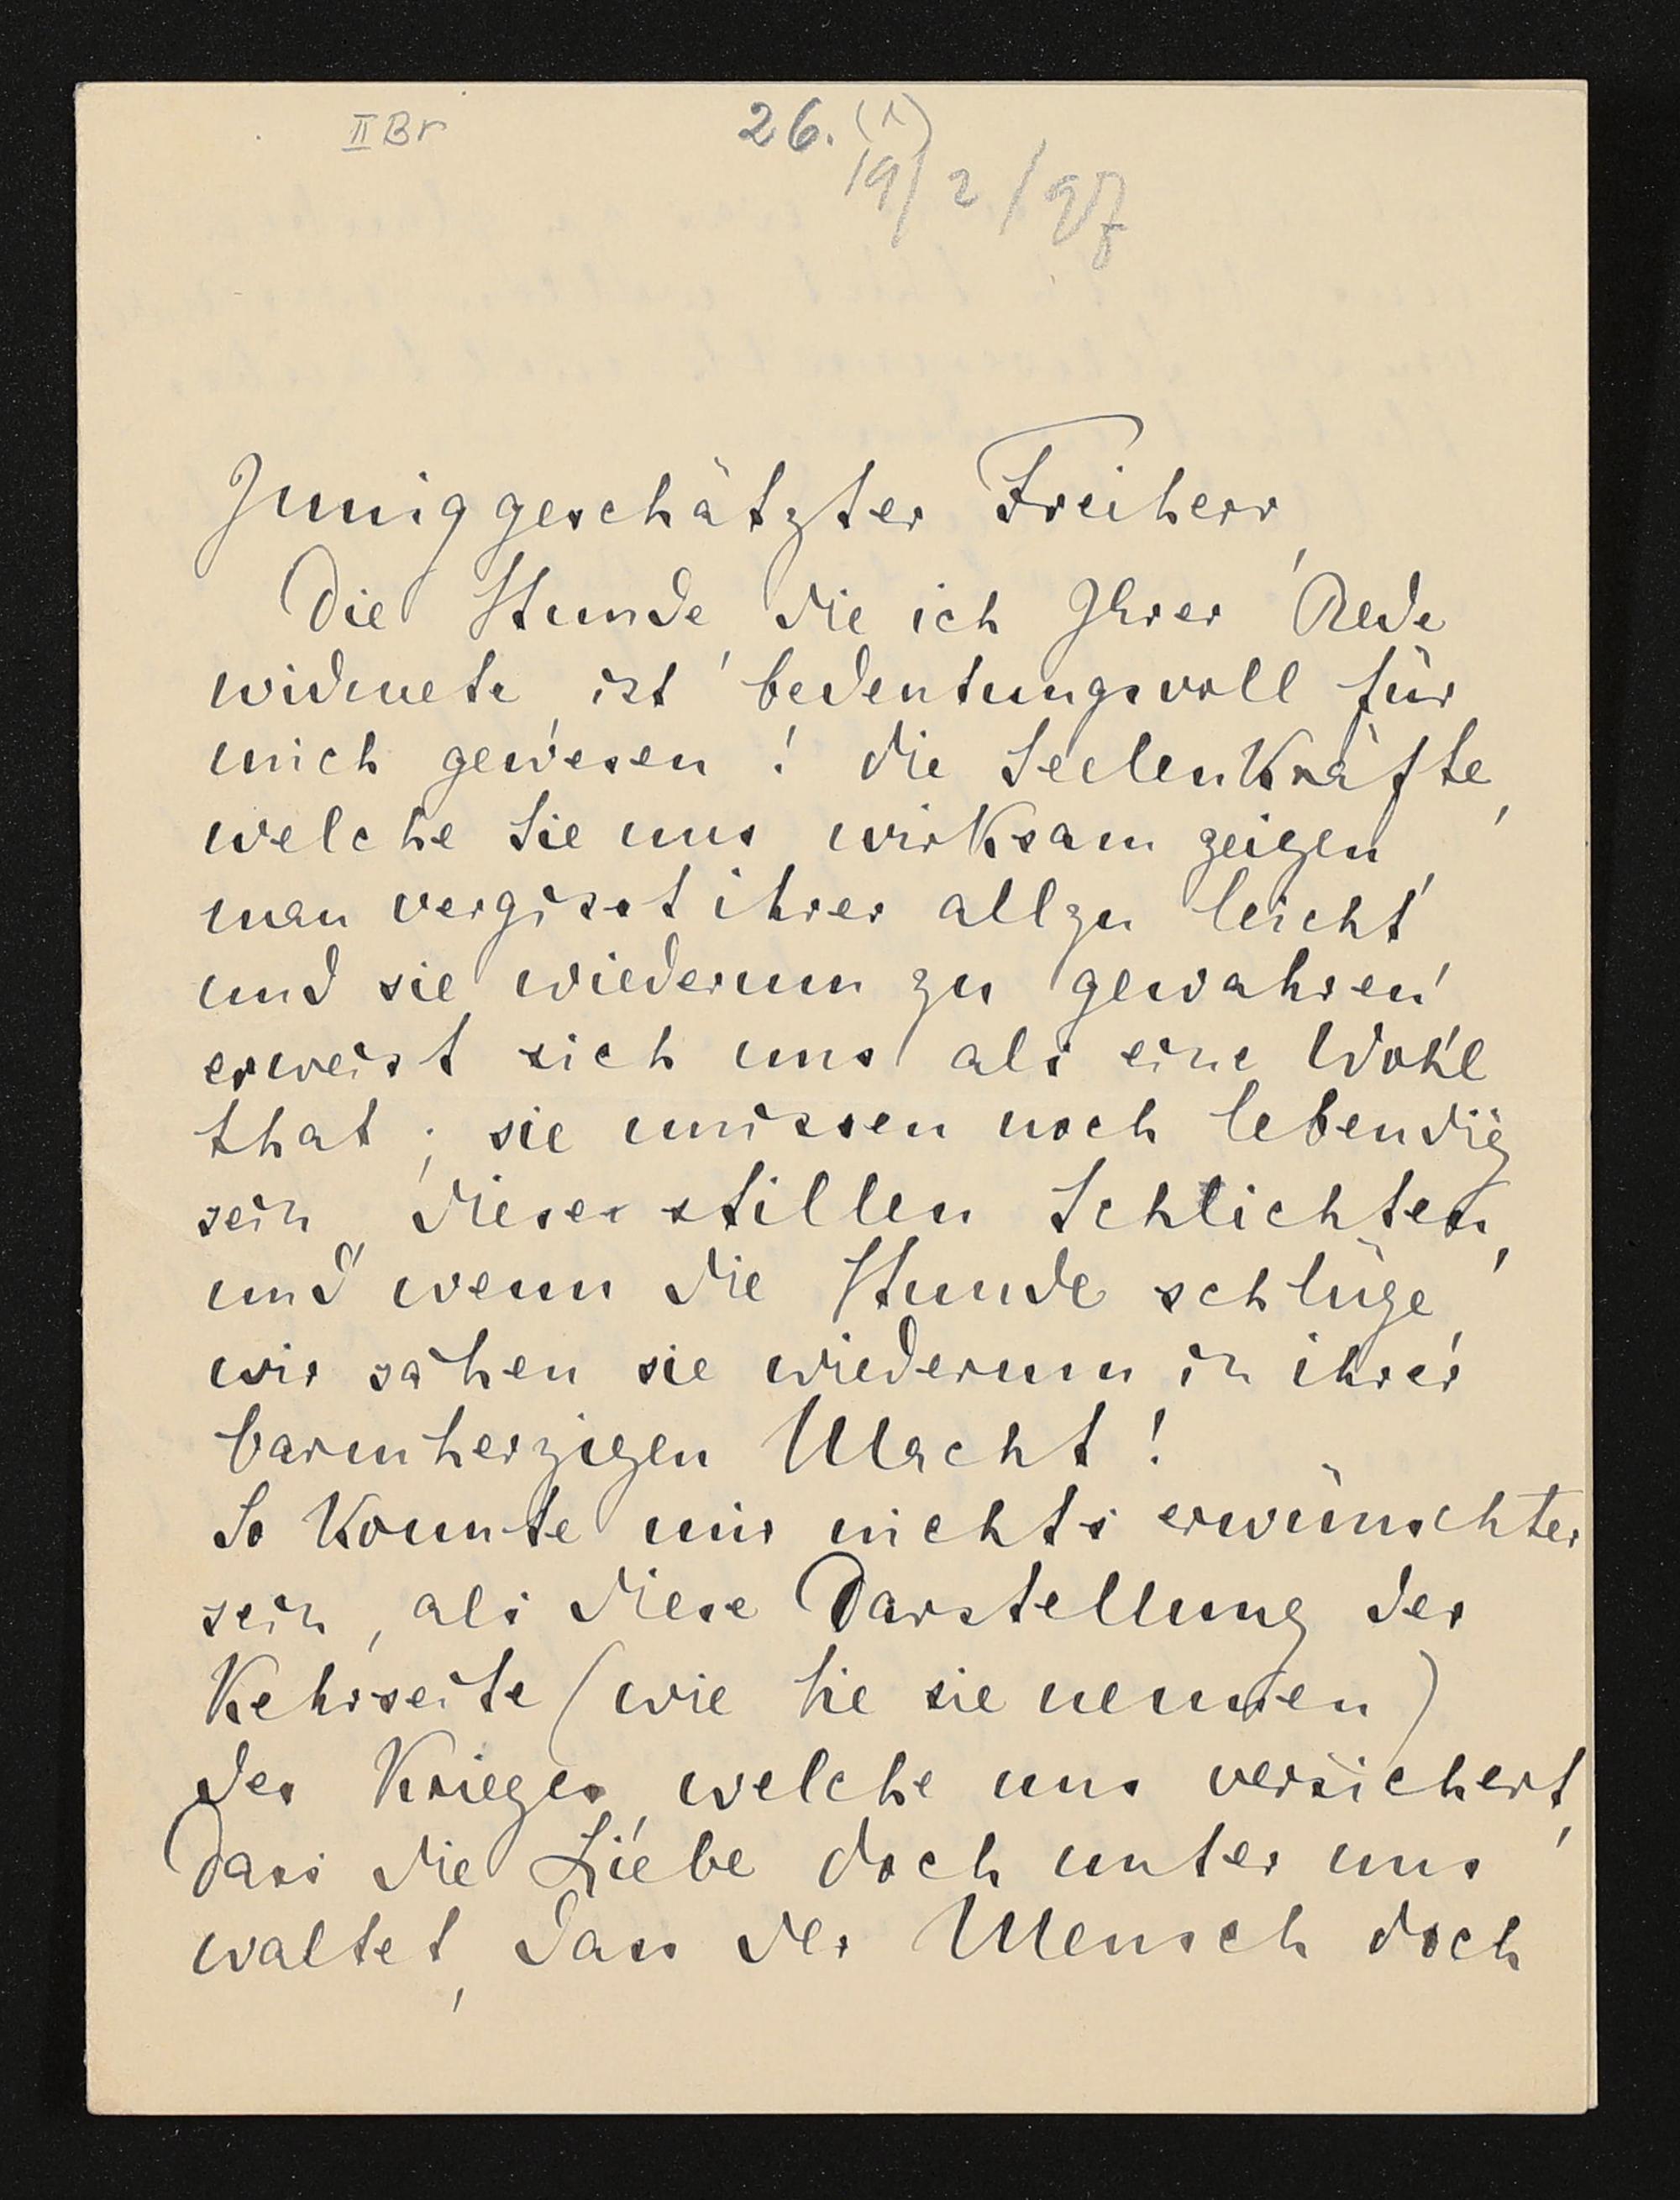 II Br
26. (1)
19/2/97
Inniggeschätzter Freiherr,
Die Stunde, die ich Ihrer Rede
widmete, ist bedeutungsvoll für
mich gewesen! die Seelenkräfte,
welche Sie uns wirksam zeigen,
man vergisst ihrer allzu leicht,
und sie wiederum zu gewahren
erweist sich uns als eine Wohl
that; sie müssen noch lebendig
sein, diese stillen Schlichten,
und wenn die Stunde schlüge,
wir sähen sie wiederum in ihrer
barmherzigen Macht!
So konnte mir nichts erwünschter
sein, als diese Darstellung der
Kehrseite (wie Sie sie nennen)
des Krieges, welche uns versichert,
dass die Liebe doch unter uns
waltet, dass der Mensch doch